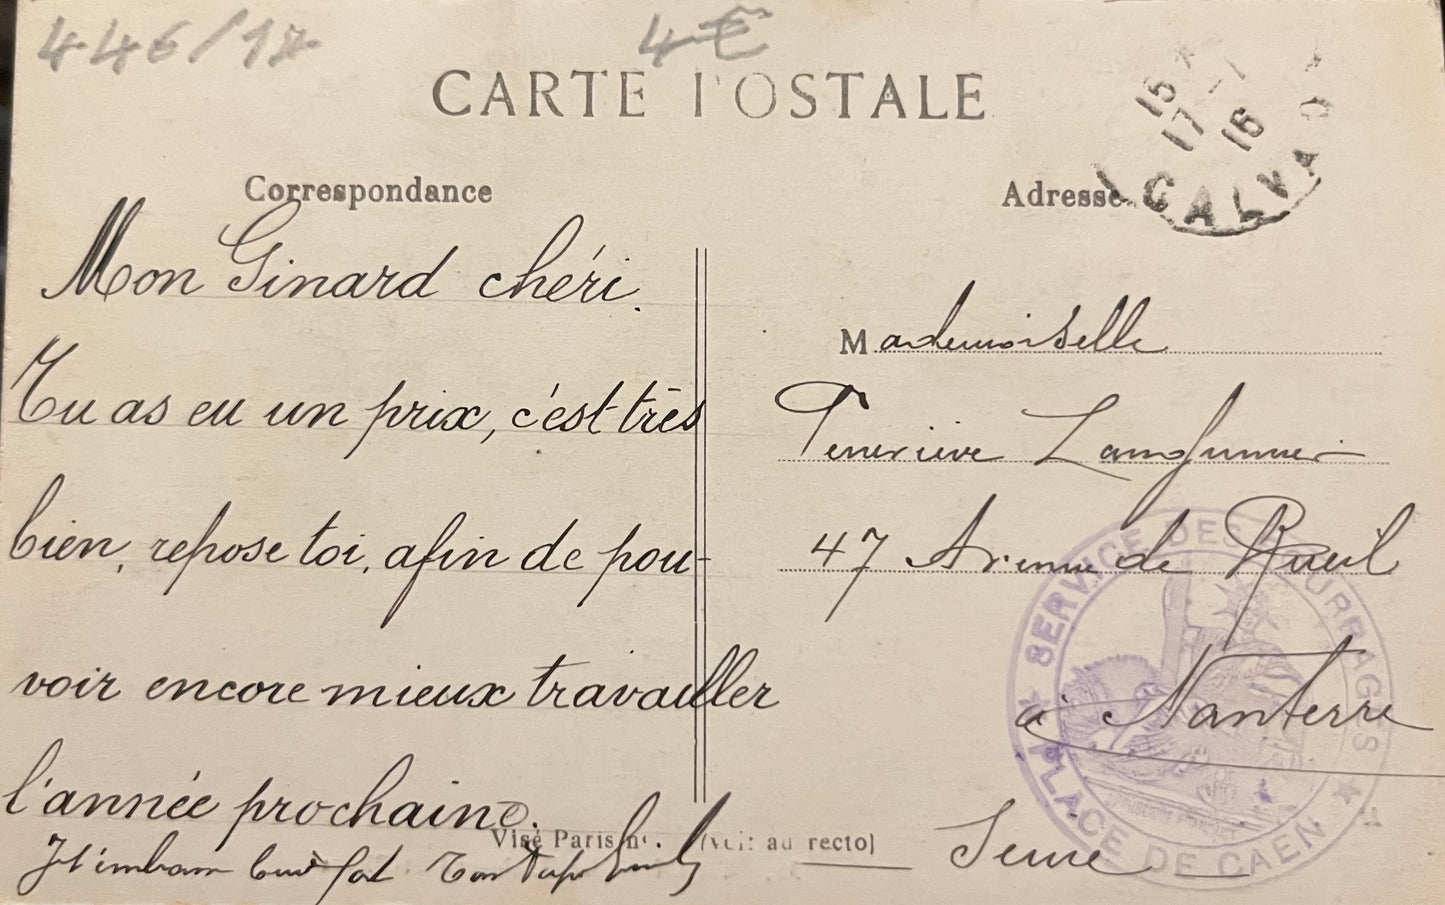 446/12
4€
CARTE POSTALE
Correspondance
Adresse
15 *
17 - 7
16
CALVADO
Mon Ginard chéri.
Tu as eu un prix, c'est très
bien, repose toi, afin de pou-
voir encore mieux travailler
l'année prochaine.
Ton Papa
Visé Paris nº. (voir au recto)
Mademoiselle
Geneviève
47 Avenue de Rueil
à Nanterre
Seine
SERVICE DES FOURRAGES
PLACE DE CAEN